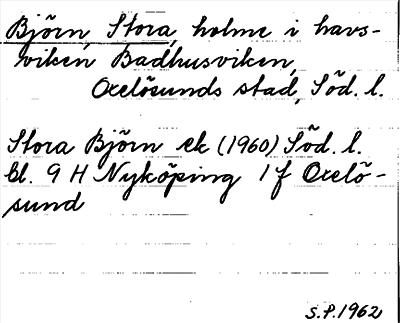 Björn, Stora, holme i havs-
viken Badhusviken,
Oxelösunds stad, Söd. l.
Stora Björn ek (1960) Söd. l.
bl. 9 H Nyköping 1 f Oxelö-
sund
S.P. 1962